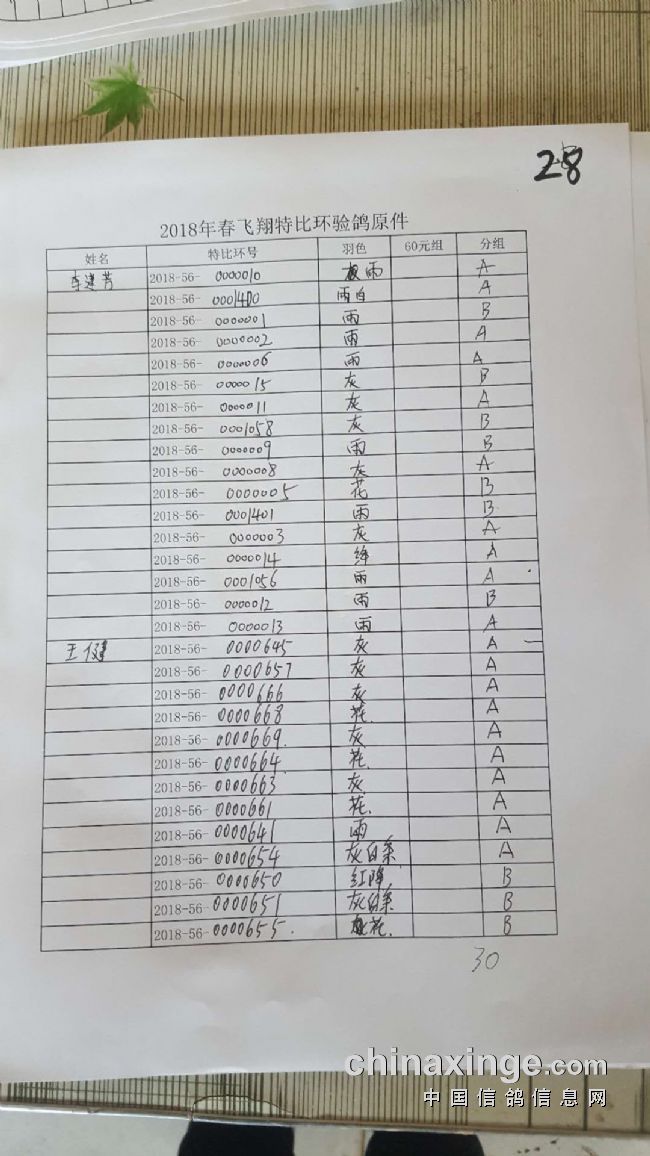 28
2018年春飞翔特比环验鸽原件
姓名 特比环号 羽色 60元组 分组
李建芳 2018-56- 0000010 雨 A
2018-56- 0001400 雨白 A
2018-56- 0000001 雨 B
2018-56- 0000002 雨 A
2018-56- 0000006 雨 A
2018-56- 0000015 灰 B
2018-56- 0000011 灰 A
2018-56- 0001058 灰 B
2018-56- 0000009 雨 B
2018-56- 0000008 灰 A
2018-56- 0000005 花 B
2018-56- 0001401 雨 B
2018-56- 0000003 灰 A
2018-56- 0000014 绛 A
2018-56- 0001056 雨 A
2018-56- 0000012 雨 B
2018-56- 0000013 雨 A
王健 2018-56- 0000645 灰 A
2018-56- 0000657 灰 A
2018-56- 0000666 灰 A
2018-56- 0000668 花 A
2018-56- 0000669 灰 A
2018-56- 0000664 花 A
2018-56- 0000663 灰 A
2018-56- 0000661 花 A
2018-56- 0000641 雨 A
2018-56- 0000654 灰白条 A
2018-56- 0000650 红降 B
2018-56- 0000651 灰白条 B
2018-56- 0000655 花 B
30
chinaxinge.com
中国信鸽信息网